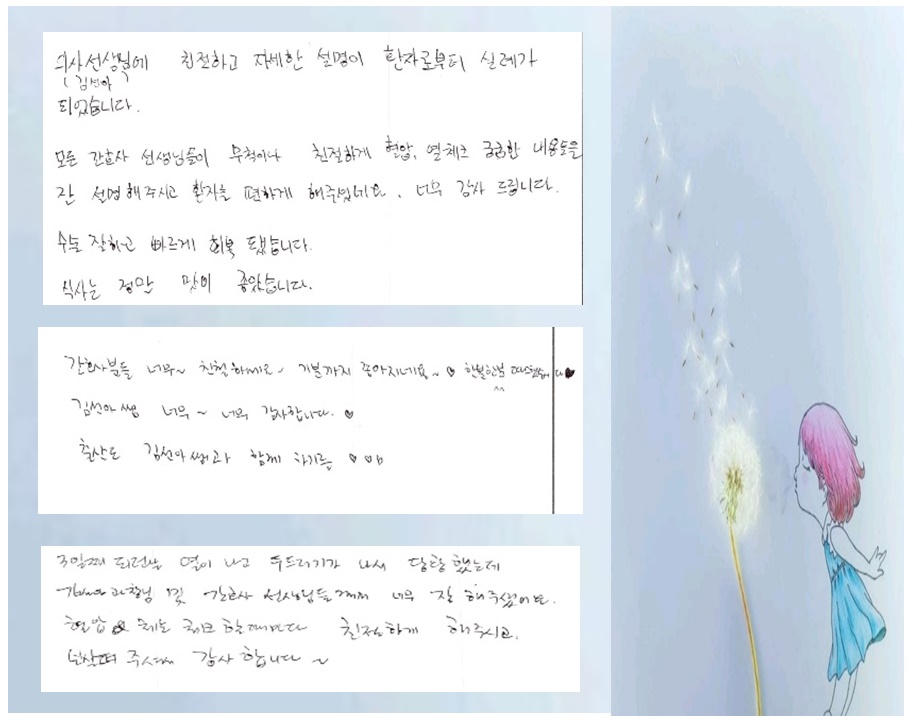 의사선생님에 친절하고 자세한 설명이 환자로부터 신뢰가
(김선아)
되었습니다.
모든 간호사 선생님들이 무척이나 친절하게 혈압, 열체크 궁금한 내용도을
잔 설명해주시고 환자을 편하게 해주십네요. 너무 감사 드립니다.
수술 잘하고 빠르게 회복 됐습니다.
식사는 정말 맛이 좋았습니다.
간호사분들 너무~ 친절하세요~ 기분까지 좋아지네요~ ♡ 한분한분 다 ♥
^^
김선아쌤 너무~ 너무 감사합니다. ♡
출산도 김선아쌤과 함께 하기를 ♡♡♡
3일째 되던날 열이 나고 두드러기가 나서 당황했는데
과장님 및 간호사 선생님들께서 너무 잘 해주셨어요.
혈압 & 체온 체크 할때마다 친절하게 해주시고.
보살펴 주셔서 감사합니다~